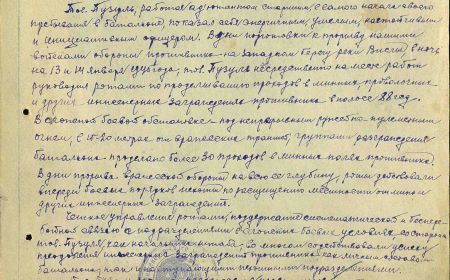 Тов. Пузуль, работая адъютантом старшим, с самого начала своего
пребывания в батальоне, показал себя энергичным, умелым, настойчивым
и инициативным офицером. В дни подготовки к прорыву нашими
войсками обороны противника на западном берегу реки Висла, в ночь
на 13 и 14 января 1945 года, тов. Пузуль непосредственно на месте работ
руководил ротами по проделыванию проходов в минных, проволочных
и других инженерных заграждениях противника в полосе
В сложной боевой обстановке - под непрерывным ружейно-пулеметным
огнем, в 15-20 метрах от вражеских траншей, группами разграждения
батальона - проделано более 30 проходов в минных полях противника.
В дни прорыва вражеской обороны на всю ее глубину, роты действовали
впереди боевых порядков пехоты по расчищению местности от мин и
других инженерных заграждений.
Четкое управление ротами, поддержание систематической и беспере-
бойной связи с подразделениями в сложных боевых условиях, со стороны
тов. Пузуль, как начальника штаба, во многом содействовали успеху
преодоления инженерных заграждений противника как личным составом
батальона, так и наступающими пехотными подразделениями.